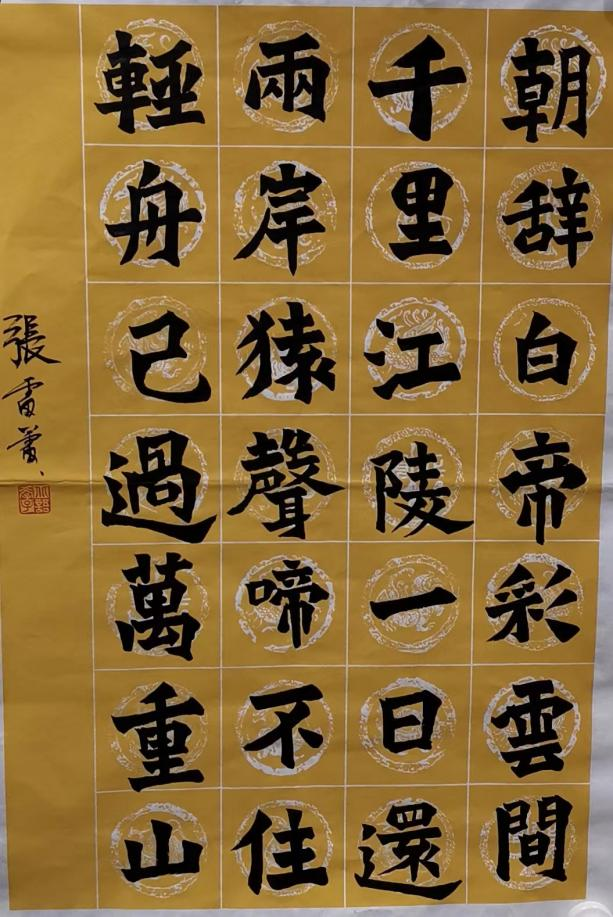 朝辞白帝彩雲間
千里江陵一日還
兩岸猿聲啼不住
輕舟己過萬重山
張雷